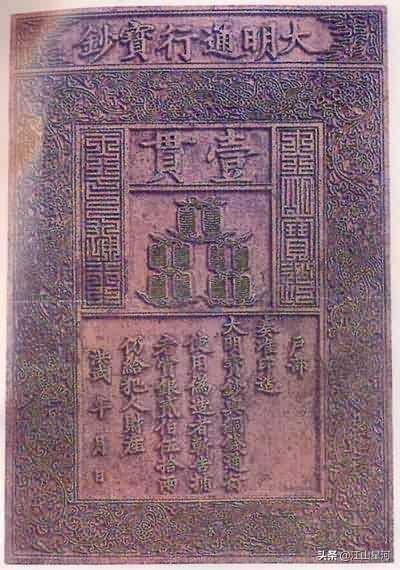 大明通行寶鈔
壹貫
大明寶鈔
天下通行
戶部
奏准印造
大明寶鈔與銅錢通行
使用偽造者斬告捕
者賞銀貳伯伍拾兩
仍給犯人財產
洪武 年 月 日
头条 @江山星河